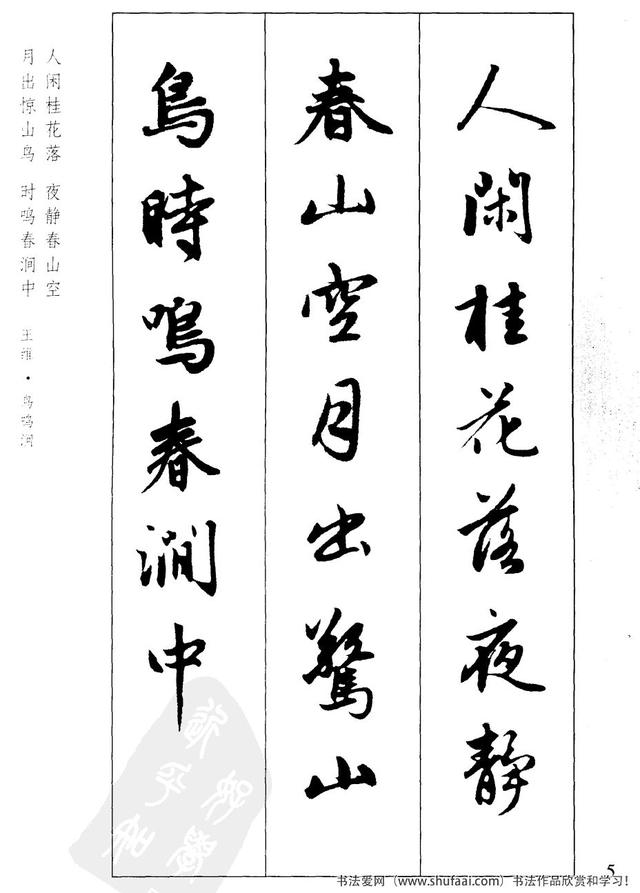 人閑桂花落夜静
春山空月出驚山
鳥時鳴春澗中
人闲桂花落 夜静春山空
月出惊山鸟 时鸣春涧中 王维·鸟鸣涧
5
书法爱网（www.shufaai.com）书法作品欣赏和学习！